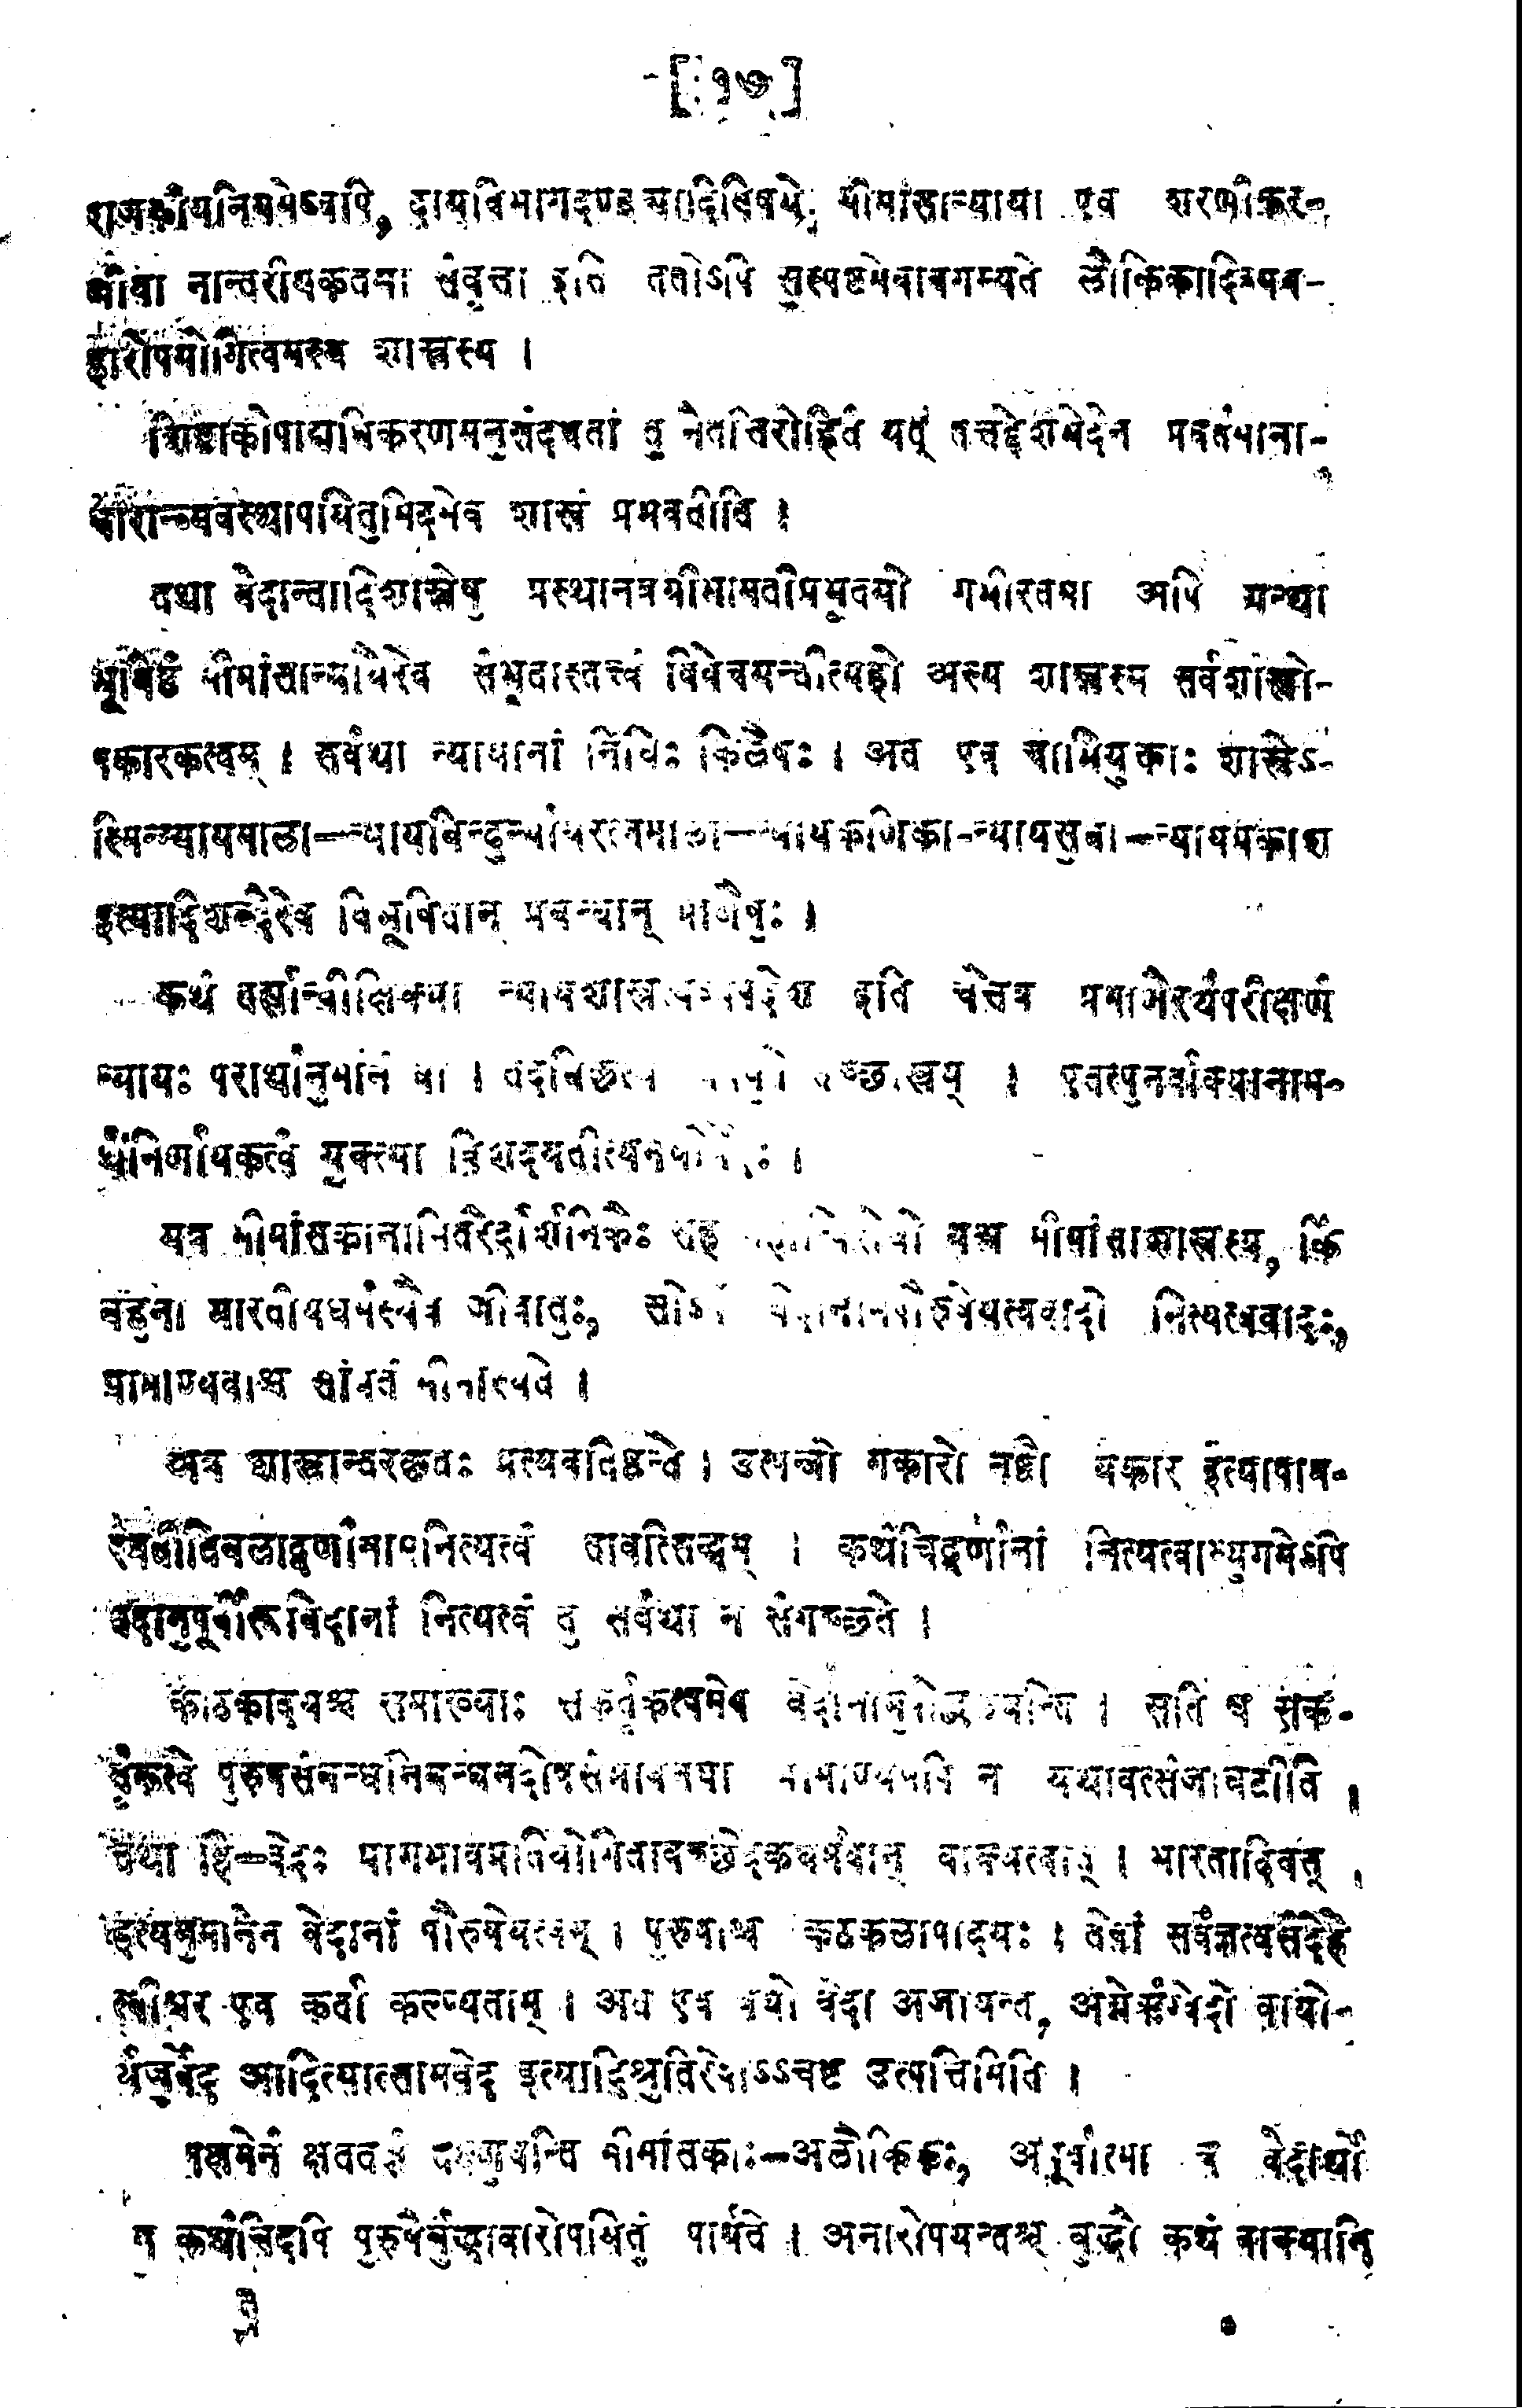 [ १७ ]
राजकीयनियमेऽपि, दायविभागदण्डन्यादिविषये, मीमांसान्याया एव शरणीकर-
णीया नान्तरीयकतया संवृत्ता इति ततोऽपि सुस्पष्टमेवावगम्यते लौकिकादिव्यव-
हारोपयोगित्वमस्य शास्त्रस्य ।
शिष्टाकोपाद्यधिकरणमनुसंदधतां तु नैतत्तिरोहितं यत् तत्तद्देशभेदेन प्रवर्तमाना-
चारान्व्यवस्थापयितुमिदमेव शास्त्रं प्रभवतीति ।
तथा वेदान्तादिशास्त्रेषु प्रस्थानत्रयीभामतीप्रभृतयो गभीरतमा अपि ग्रन्था
भूयिष्ठं मीमांसान्यायैरेव संभृतास्तत्त्वं विवेचयन्तीत्यहो अस्य शास्त्रस्य सर्वशास्त्रो-
पकारकत्वम् । सर्वथा न्यायानां निधिः किलैषः । अत एव चाभियुक्ताः शास्त्रेऽ-
स्मिन्न्यायमाला—न्यायबिन्दुन्यायरत्नमाला—न्यायकणिका-न्यायसुधा—न्यायप्रकाश
इत्यादिशब्दैरेव विभूषितान् प्रबन्धान् प्राणैषुः ।
कथं तर्ह्यान्वीक्षिक्या न्यायशास्त्र इति चेत्तत्र प्रमाणैरर्थपरीक्षणं
न्यायः परार्थानुमानं वा । तच्छास्त्रम् । एतत्पुनर्वाक्यानाम-
र्थनिर्णायकत्वं युक्त्या विशदयतीत्यनयोर्भेदः ।
यत्र मीमांसकानामितरैर्दार्शनिकैः सह यश्च मीमांसाशास्त्रस्य, किं
बहुना भारतीयधर्मस्यैव जीवातुः, सोऽयं वेदानामपौरुषेयत्ववादो नित्यत्ववादः,
प्रामाण्यवादश्च सांप्रतं मीमांस्यते ।
अत्र शास्त्रान्तरकृतः प्रत्यवतिष्ठन्ते । उत्पन्नो गकारो नष्टो यकार इत्याबाध-
प्रतीतिबलाद्वर्णानामनित्यत्वं तावत्सिद्धम् । कथंचिद्वर्णानां नित्यत्वाभ्युपगमेऽपि
तदानुपूर्वीरूपवेदानां नित्यत्वं तु सर्वथा न संगच्छते ।
काठकादयश्च समाख्याः सकर्तृकत्वमेव वेदानामुपोद्बलयन्ति । सति च सक-
र्तृकत्वे पुरुषसंबन्धनिबन्धनदोषसंभावनया प्रामाण्यमपि न यथावत्संजाघटीति ।
तथा हि—वेदः प्रागभावप्रतियोगितावच्छेदकधर्मवान् वाक्यत्वात् । भारतादिवत् ।
इत्यनुमानेन वेदानां पौरुषेयत्वम् । पुरुषाश्च कठकलापादयः । तेषां सर्वज्ञत्वसंदेहे
त्वीश्वर एव कर्ता कल्प्यताम् । अत एव त्रयो वेदा अजायन्त, अग्नेर्ऋग्वेदो वायो-
र्यजुर्वेद आदित्यात्सामवेद इत्यादिश्रुतिरेवाऽऽचष्ट उत्पत्तिमिति ।
पक्षमेनं क्षपयन्ति मीमांसकाः—अलौकिकः, अपूर्वात्मा च वेदार्थो
न कथंचिदपि पुरुषैर्बुद्धावारोपयितुं पार्यते । अनारोपयन्तश्च बुद्धौ कथं वाक्यानि